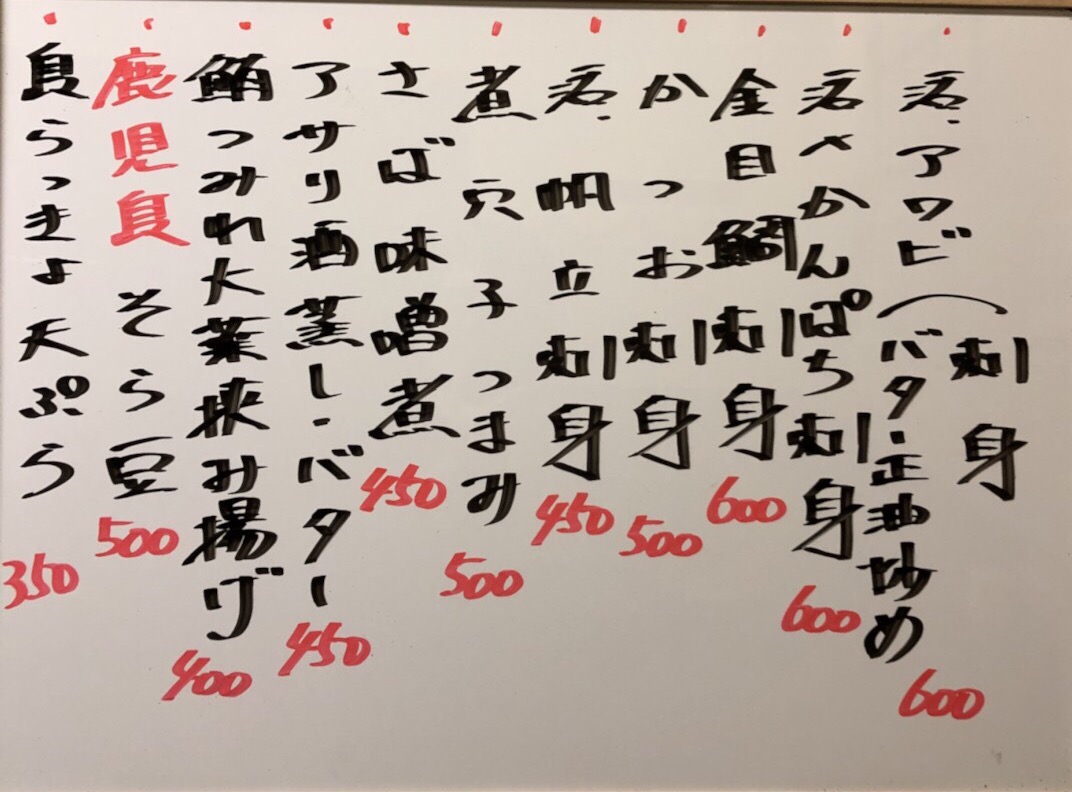 活・アワビ(刺身
バター正油炒め 600
活〆かんぱち刺身 600
金目鯛刺身 600
かつお刺身 500
活・帆立刺身 450
煮穴子つまみ 500
さば味噌煮 450
アサリ酒蒸し・バター 450
鮪つみれ大葉挟み揚げ 400
鹿児島そら豆 500
島らっきょ天ぷら 350